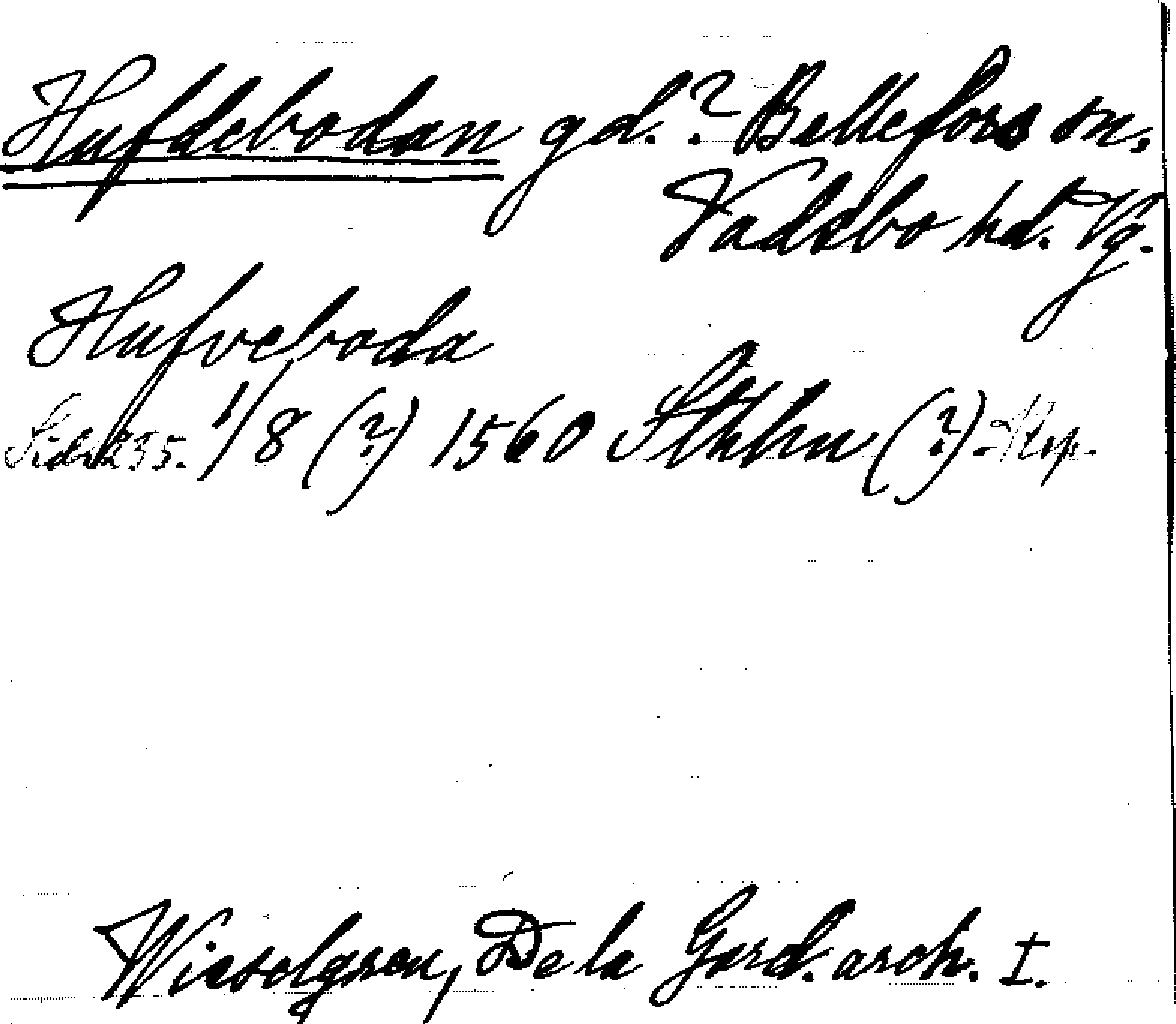 Hufdebodan gd.? Bellefors sn.
Vadsbo hd. Vg.
Hufveboda
1/8 (?) 1560 Sthlm (?). Kop.
Wieselgren, De la Gard. arch. I.